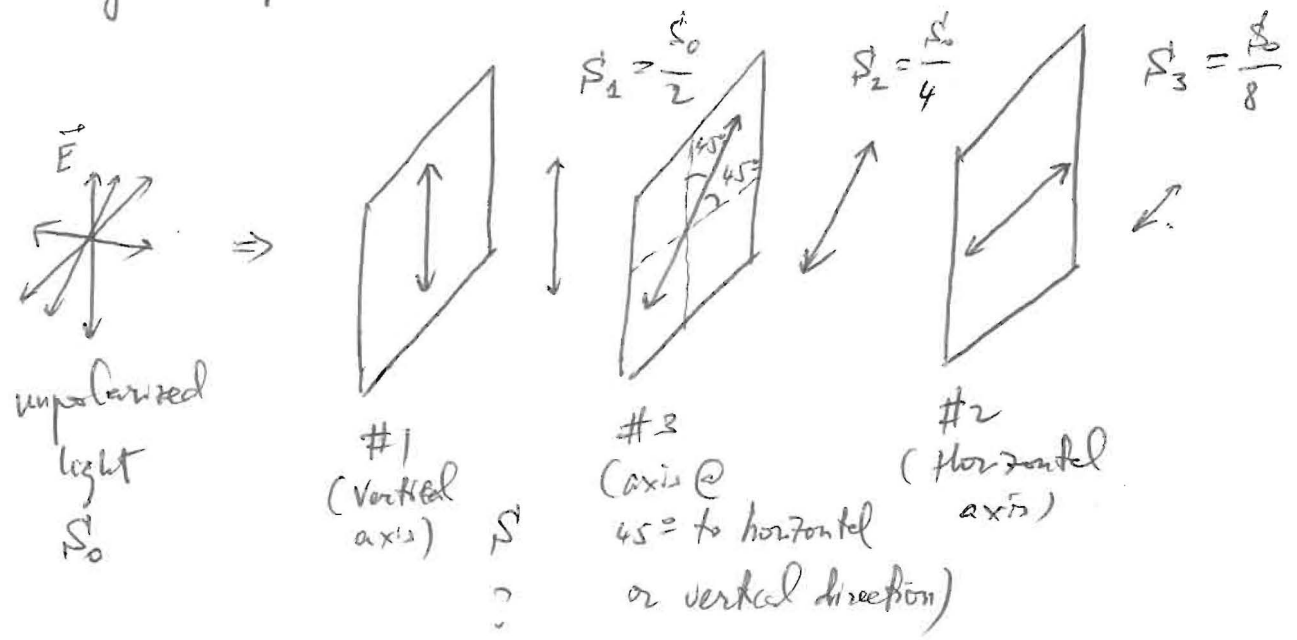 S₁ = S₀/2
S₂ = S₀/4
S₃ = S₀/8
E⃗
45°
45°
⇒
unpolarized
light
S₀
#1
(vertical
axis)
S
?
#3
(axis @
45° to horizontal
or vertical direction)
#2
(Horizontal
axis)